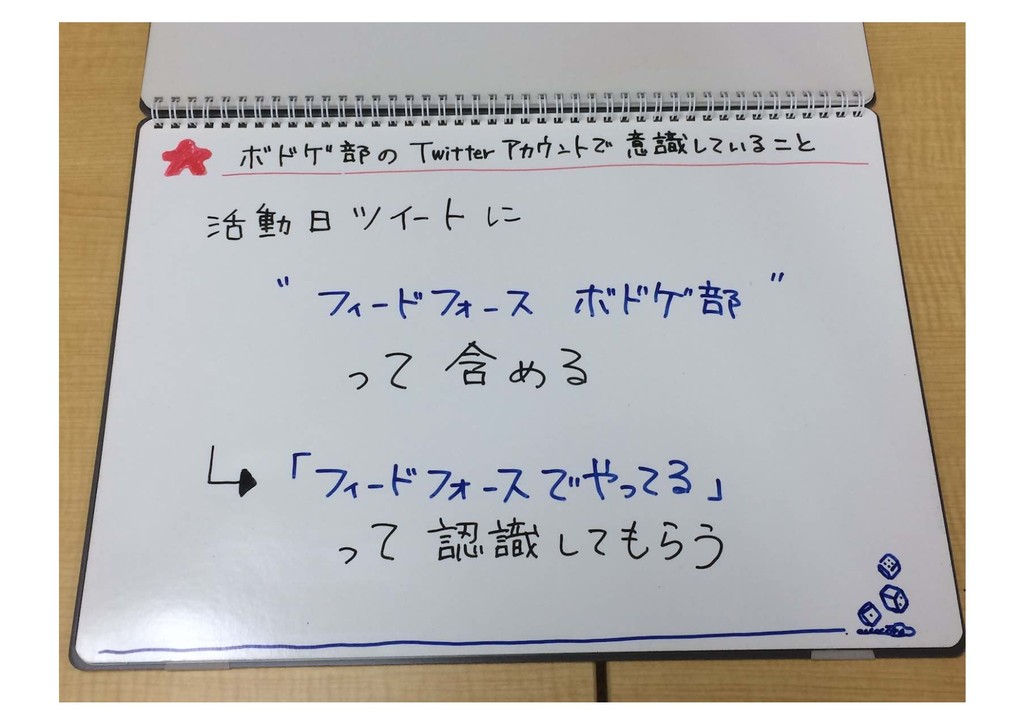 ボドゲ部のTwitterアカウントで意識していること
活動日ツイートに
"フィードフォース ボドゲ部"
って含める
「フィードフォースでやってる」
って認識してもらう